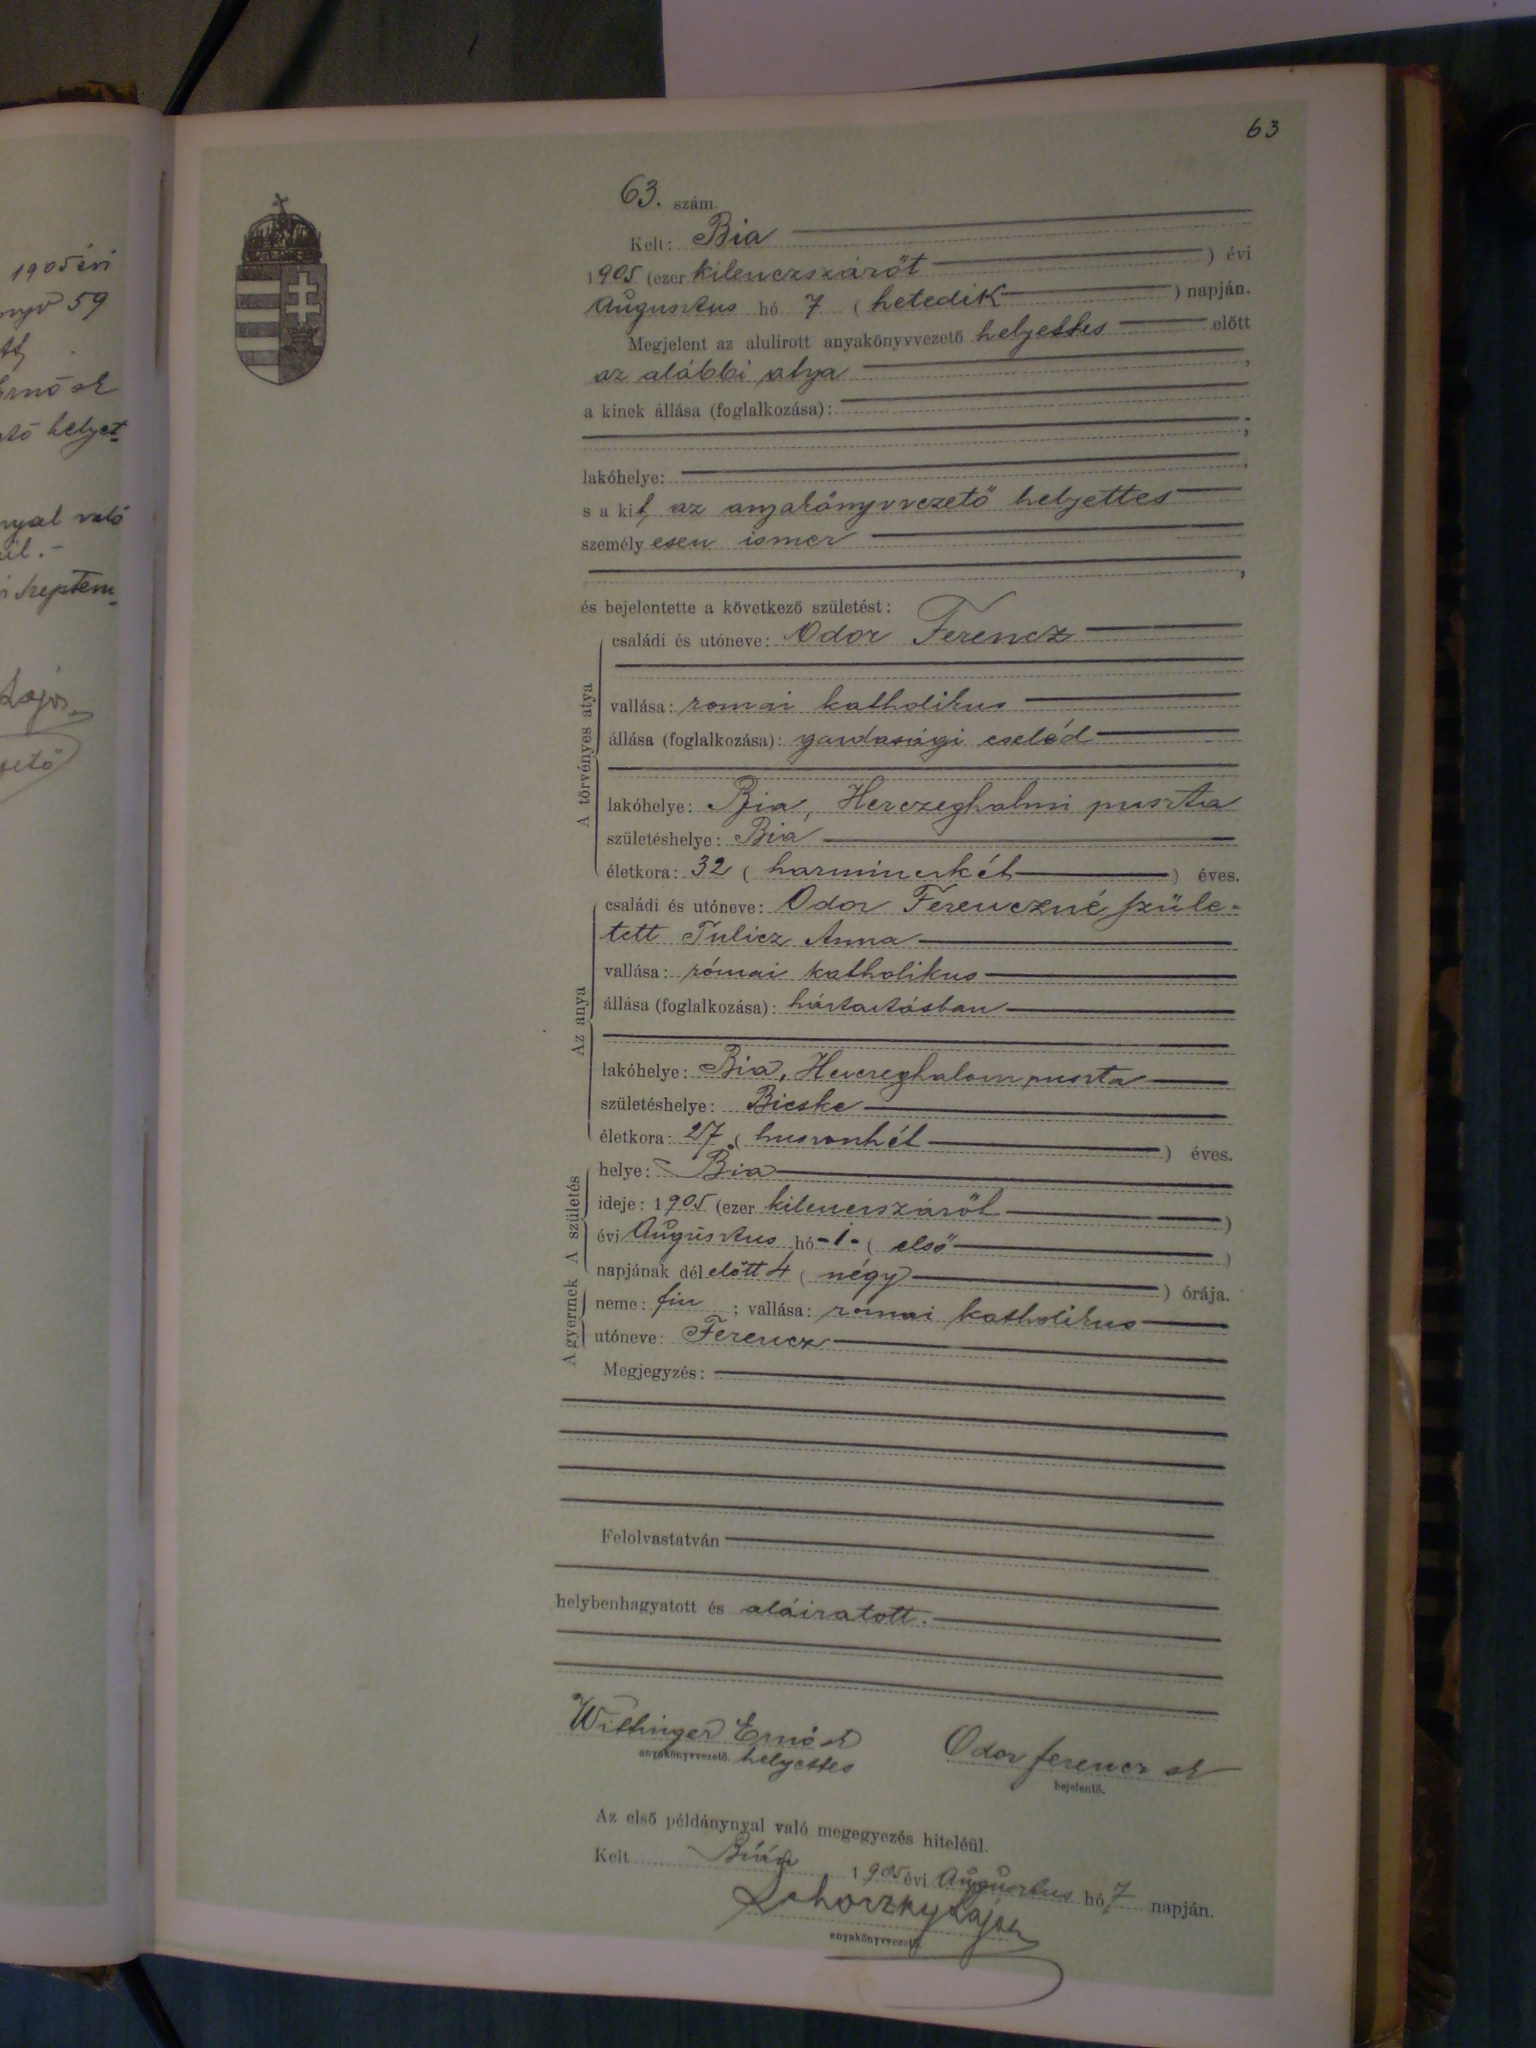 63
1905 évi
nyv 59
Ernő sk
helyet-
nyal való
Szeptem-
Lajos
63. szám.
Kelt: Bia
1905 (ezer kilenczszázöt ) évi
Augusztus hó 7 (hetedik ) napján.
Megjelent az alulirott anyakönyvvezető helyettes előtt
az alábbi atya ,
a kinek állása (foglalkozása):
;
lakóhelye: ,
s a kit az anyakönyvvezető helyettes
személyesen ismer
,
és bejelentette a következő születést:
A törvényes atya
családi és utóneve: Odor Ferencz
vallása: romai katholikus
állása (foglalkozása): gazdasági cseléd
lakóhelye: Bia, Herczeghalmi puszta
születéshelye: Bia
életkora: 32 (harminczkét ) éves.
Az anya
családi és utóneve: Odor Ferenczné szüle-
tett Tulicz Anna
vallása: római katholikus
állása (foglalkozása): háztartásban
lakóhelye: Bia, Herczeghalom puszta
születéshelye: Bicske
életkora: 27 (huszonhét ) éves.
A születés
helye: Bia
ideje: 1905 (ezer kilenczszázöt )
évi Augusztus hó -1- (első )
napjának délelőtt 4 (négy ) órája.
A gyermek
neme: fiu ; vallása: romai katholikus
utóneve: Ferencz
Megjegyzés:
Felolvastatván
helybenhagyatott és aláiratott.
Wittinger Ernő sk
anyakönyvvezető. helyettes
Odor ferencz sk
bejelentő.
Az első példánynyal való megegyezés hiteléül.
Kelt Bián, 1905 évi Augusztus hó 7 napján.
Lajos
anyakönyvvezető.